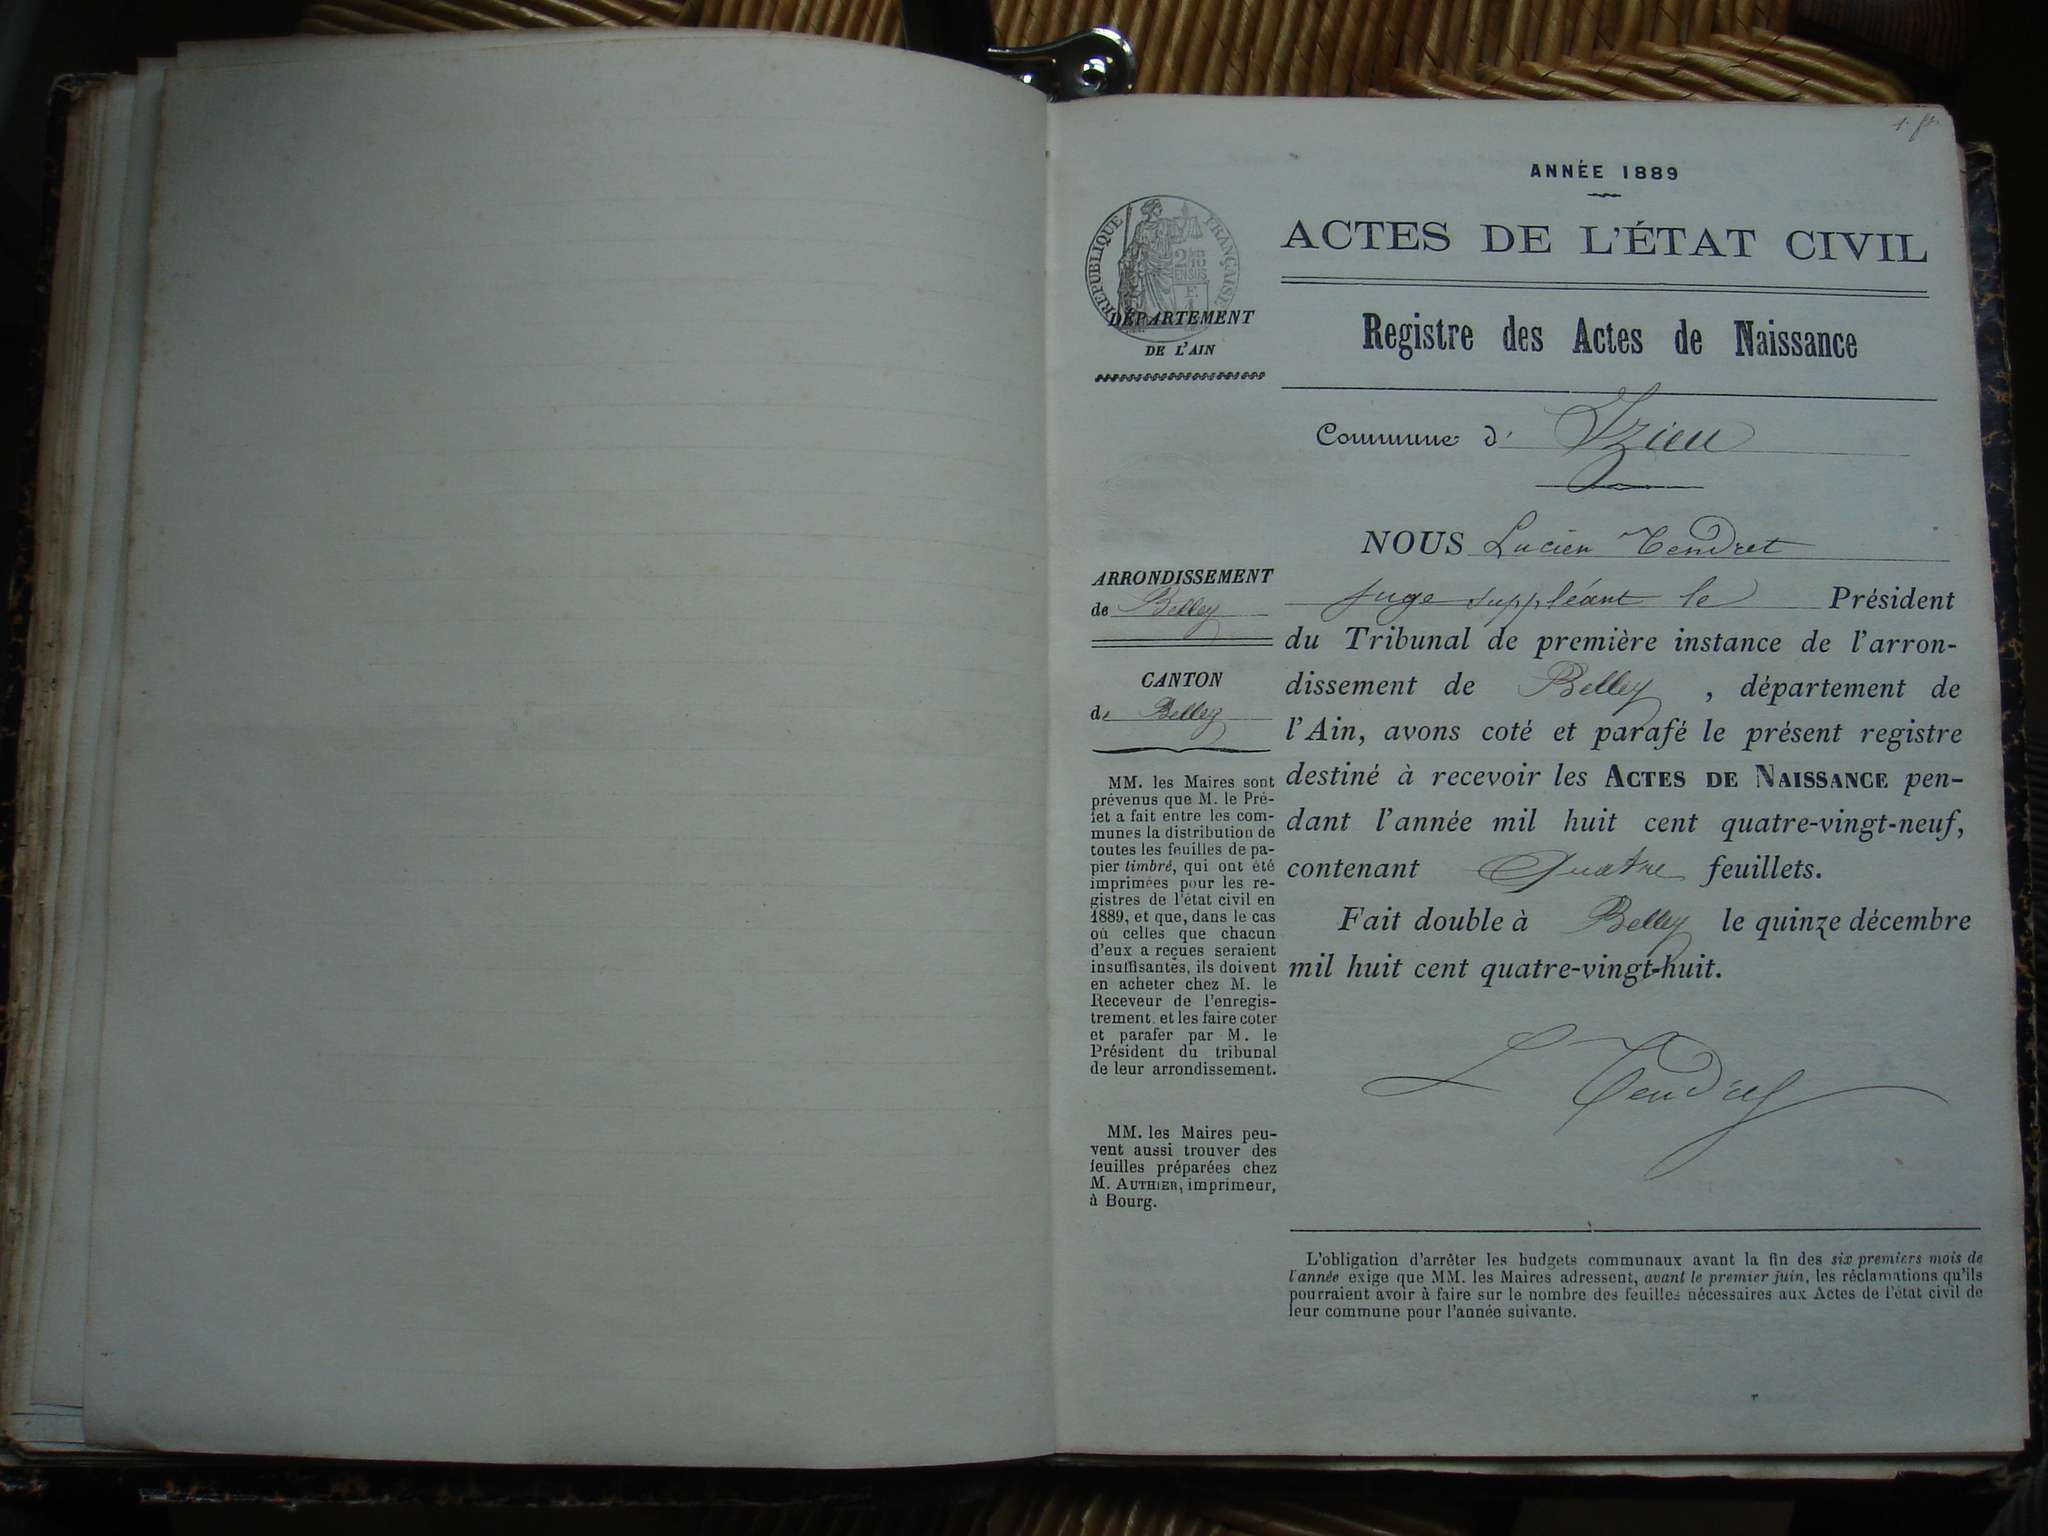 1.
ANNÉE 1889
ACTES DE L'ÉTAT CIVIL
RÉPUBLIQUE FRANÇAISE
2/10
EN SUS
DÉPARTEMENT
DE L'AIN
Registre des Actes de Naissance
Commune d' Izieu
ARRONDISSEMENT
de Belley
CANTON
de Belley
MM. les Maires sont
prévenus que M. le Pré-
fet a fait entre les com-
munes la distribution de
toutes les feuilles de pa-
pier timbré, qui ont été
imprimées pour les re-
gistres de l'état civil en
1889, et que, dans le cas
où celles que chacun
d'eux a reçues seraient
insuffisantes, ils doivent
en acheter chez M. le
Receveur de l'enregis-
trement et les faire coter
et parafer par M. le
Président du tribunal
de leur arrondissement.
MM. les Maires peu-
vent aussi trouver des
feuilles préparées chez
M. AUTHIER, imprimeur,
à Bourg.
NOUS Lucien Tendret
Juge suppléant le Président
du Tribunal de première instance de l'arron-
dissement de Belley, département de
l'Ain, avons coté et parafé le présent registre
destiné à recevoir les ACTES DE NAISSANCE pen-
dant l'année mil huit cent quatre-vingt-neuf,
contenant Quatre feuillets.
Fait double à Belley le quinze décembre
mil huit cent quatre-vingt-huit.
L Tendret
L'obligation d'arrêter les budgets communaux avant la fin des six premiers mois de
l'année exige que MM. les Maires adressent, avant le premier juin, les réclamations qu'ils
pourraient avoir à faire sur le nombre des feuilles nécessaires aux Actes de l'état civil de
leur commune pour l'année suivante.